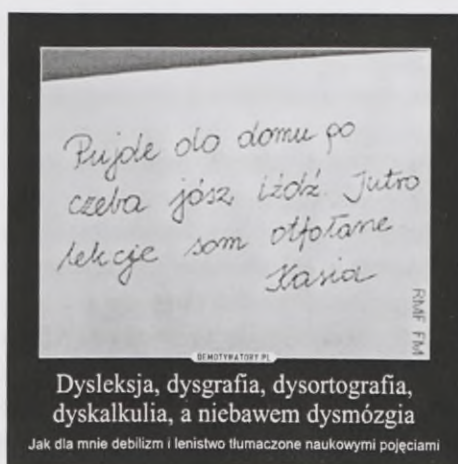 Pujde do domu po
czeba jósz iźdź. Jutro
lekcje som otfołane
Kasia
RMF FM
DEMOTYWATORY.PL
Dysleksja, dysgrafia, dysortografia,
dyskalkulia, a niebawem dysmózgia
Jak dla mnie debilizm i lenistwo tłumaczone naukowymi pojęciami